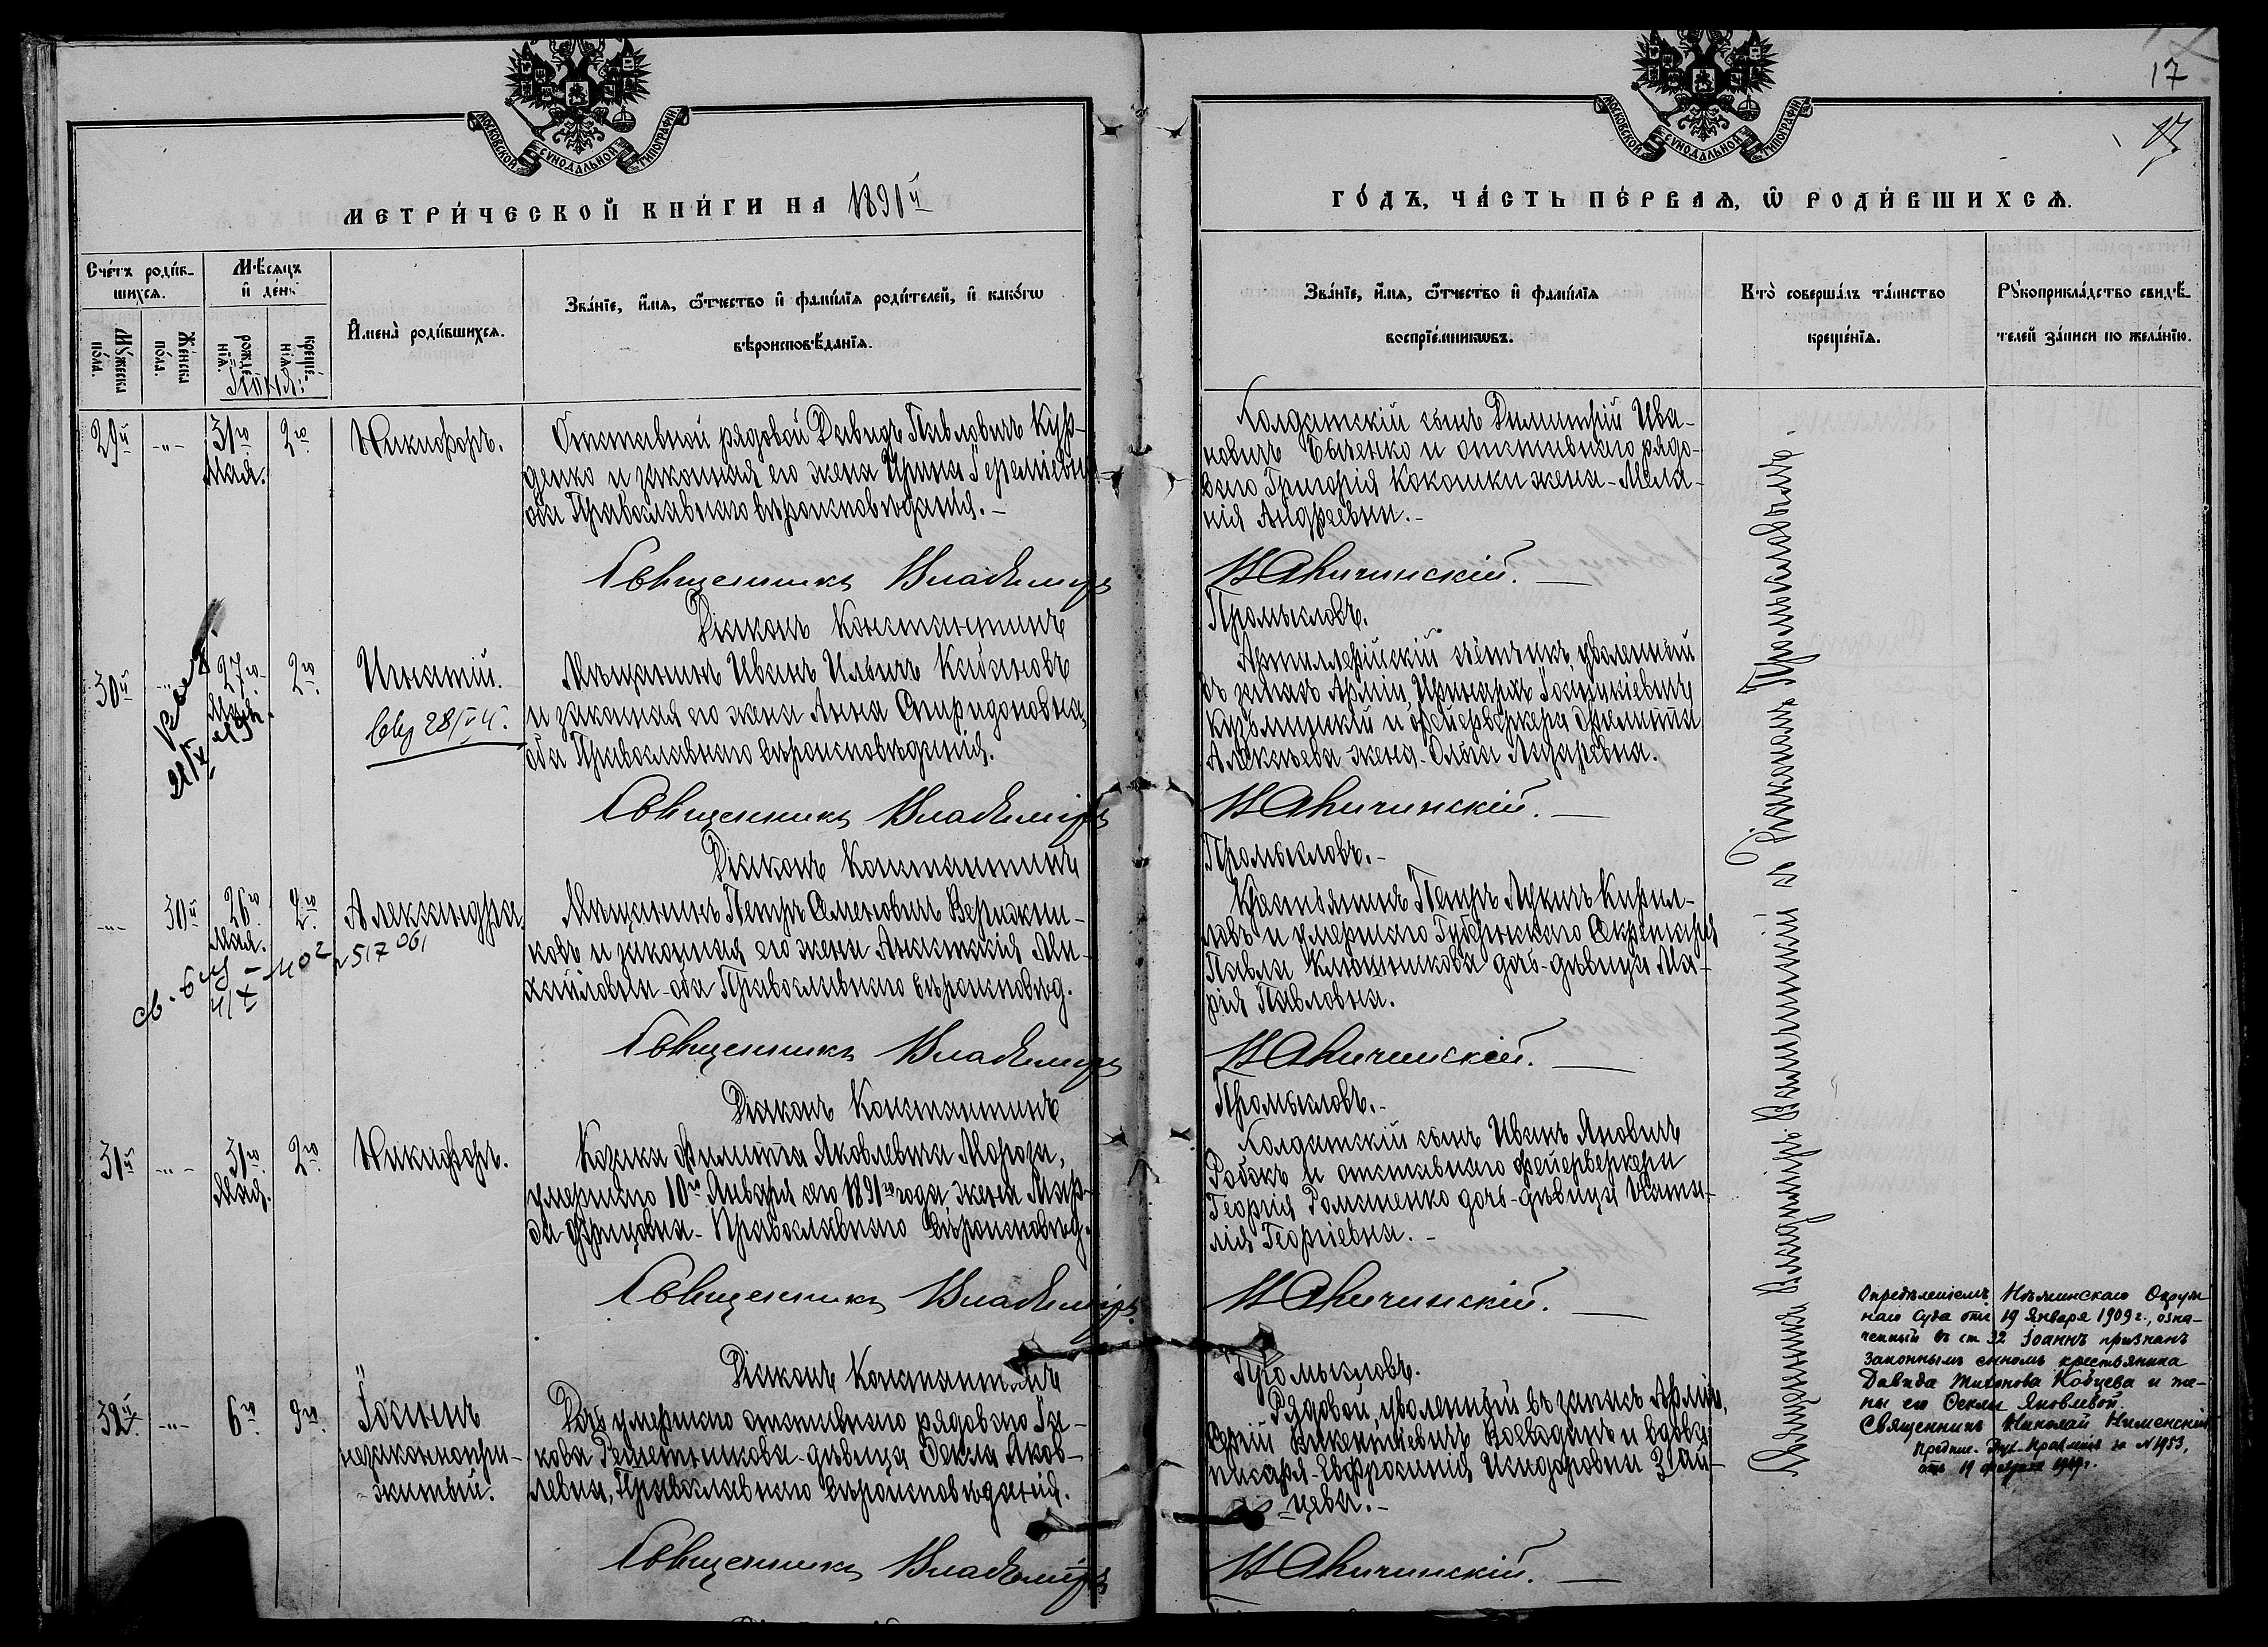 17
17
МОСКОВСКОЙ СѴНОДАЛЬНОЙ ТИПОГРАФІИ
МЕТРИ́ЧЕСКОЙ КНИ́ГИ НА 1891й
Сче́тъ роди́вшихся.
Мѣ́сяцъ и де́нь
Му́жеска по́ла.
Же́нска по́ла.
рожде́нія.
креще́нія.
Имена̀ роди́вшихся.
Зва́ніе, и́мя, ѻ҆́тчество и фами́лія роди́телей, и како́гѡ
вѣроисповѣ́данія.
Іюня:
29й -"- 31го Мая. 2го Никифоръ.
Отставной рядовой Давидъ Павловичъ Кур-
денко и законная его жена Ирина Іереміевна
оба Православнаго вѣроисповѣданія.-
Священникъ Владиміръ
Діаконъ Константинъ
30й -"- 27го Мая. 2го Игнатій.
Мѣщанинъ Иванъ Ильичъ Кабановъ
и законная его жена Анна Спиридоновна,
оба Православнаго вѣроисповѣданія.
Священникъ Владиміръ
Діаконъ Константинъ
-"- 30й 26го Мая. 2го Александра.
№ 517
Мѣщанинъ Петръ Семеновичъ Веризжни-
ковъ и законная его жена Анастасія Ми-
хайловна-оба Православнаго вѣроисповѣд.
Священникъ Владиміръ
Діаконъ Константинъ
31й -"- 31го Мая. 2го Никифоръ.
Козака Филиппа Яковлевича Мороза,
умершаго 10го Января сего 1891го года жена Мар-
Православнаго вѣроисповѣд.
Священникъ Владиміръ
Діаконъ Константинъ
32й -"- 6го 9го Іоаннъ
незаконнопри-
житый.
Дочь умершаго отставнаго рядоваго Іа-
кова Решетникова-дѣвица Ѳекла Яков-
левна, Православнаго вѣроисповѣданія.
Священникъ Владиміръ
ГО́ДЪ, ЧА́СТЬ ПЕ́РВАЯ, Ѡ҆ РОДИ́ВШИХСЯ.
МОСКОВСКОЙ СѴНОДАЛЬНОЙ ТИПОГРАФІИ
Зва́ніе, и́мя, ѻ҆́тчество и фами́лія
воспріе́мникѡвъ.
Кто̀ соверша́лъ та́инство
креще́нія.
Рꙋкоприкла́дство свидѣ́-
телей за́писи по жела́нію.
Солдатскій сынъ Димитрій Ива-
новичъ Быченко и отставнаго рядо-
ваго Григорія Кокошки жена-Мела-
нія Андреевна.-
Промысловъ.
Артиллерійскій уволенный
въ запасъ Арміи,
Кузьминскій и фейерверкера Филиппа
Алексѣева жена-Ольга Лазаревна.
Промысловъ.-
Крестьянинъ Петръ Лукичъ Кирил-
ловъ и умершаго Губернскаго Секретаря
Павла Ключникова дочь-дѣвица Ма-
рія Павловна.
Промысловъ.-
Солдатскій сынъ Иванъ Яновичъ
Робокъ и отставнаго фейерверкера
Георгія Романенко дочь-дѣвица Ната-
лія Георгіевна.-
Промысловъ.
Рядовой, уволенный въ запасъ Арміи,
Сергій Викентіевичъ Воеводинъ и вдова
писаря-Евфросинія Исидоровна Зай-
цева.-
Священникъ Владиміръ съ Діакономъ Промысловымъ.
Опредѣленіемъ Окруж
наго Суда отъ 19 Января 1909 г., озна-
ченный въ ст 32 Іоаннъ признанъ
законнымъ сыномъ крестьянина
Давида Тихонова Ковцева и же-
ны его Ѳеклы Яковлевой.
Священникъ Николай
Предпис. Дух. Правленія за №1953,